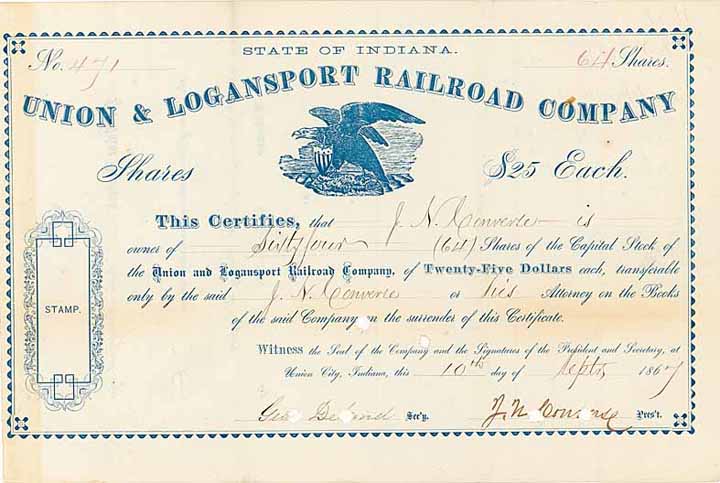 STATE OF INDIANA.
No. 471 64 Shares.
UNION & LOGANSPORT RAILROAD COMPANY
Shares $25 Each.
This Certifies, that J. N. Converse is
owner of Sixty four (64) Shares of the Capital Stock of
the Union and Logansport Railroad Company, of Twenty-Five Dollars each, transferable
only by the said J. N. Converse or his Attorney on the Books
of the said Company on the surrender of this Certificate.
STAMP.
Witness the Seal of the Company and the Signatures of the President and Secretary, at
Union City, Indiana, this 10th day of Sept, 1867
Geo Sec'y. J. N. Converse Pres't.